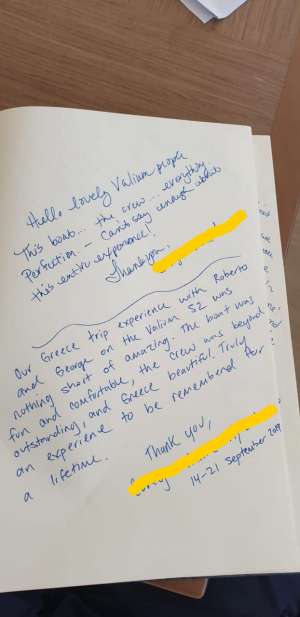 Hello lovely Valium people
This boat... the crew... everything
Perfection - Can't say enough about
this entire experience!
Thank you,
Our Greece trip experience with Roberto
and George on the Valium 52 was
nothing short of amazing. The boat was
fun and comfortable, the crew was beyond
outstanding, and Greece beautiful. Truly
an experience to be remembered for
a lifetime.
Thank you,
14-21 September 2019